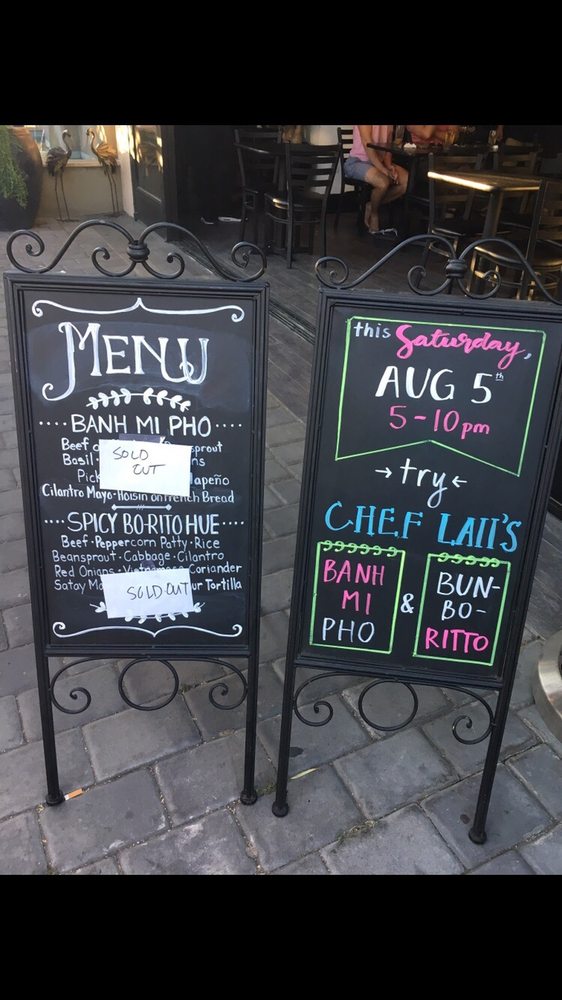 MENU
BANH MI PHO
Beef sprout
SOLD OUT
Basil
Pick lapeño
Cilantro Mayo · Hoisin on French Bread
SPICY BO-RITO HUE
Beef · Peppercorn Patty · Rice
Beansprout · Cabbage · Cilantro
Red Onions · Vietnamese Coriander
Satay Ma ur Tortilla
SOLD OUT
this Saturday,
AUG 5th
5-10pm
→ try ←
CHEF LAII'S
BANH MI PHO
&
BUN-BO-RITTO